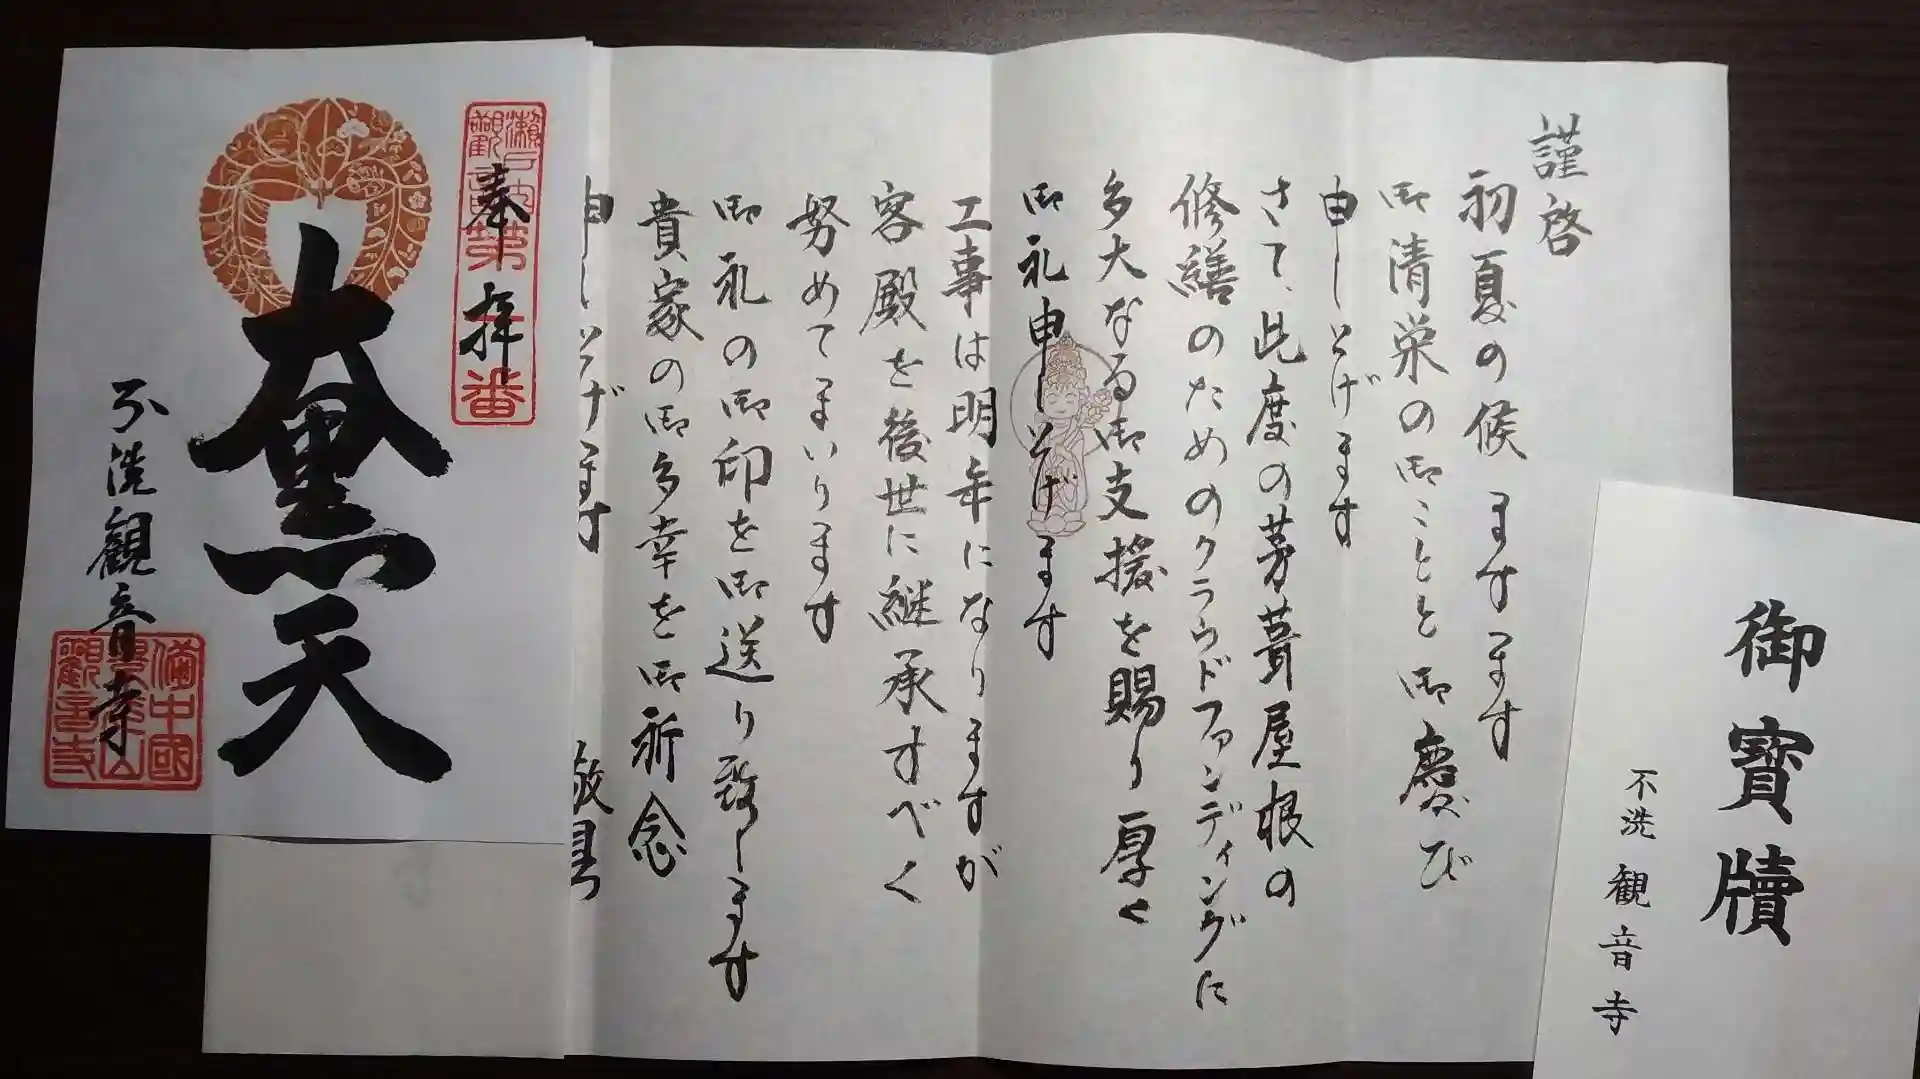 謹啓
初夏の候 ますます
御清栄の御ことと御慶び
申し上げます
さて、此度の茅葺屋根の
修繕のためのクラウドファンディングに
多大なる御支援を賜り厚く
御礼申し上げます
工事は明年になりますが
客殿を後世に継承すべく
努めてまいります
御礼の御印を御送り致します
貴家の御多幸を御祈念
申し上げます
敬具
奉拝
大黒天
不洗観音寺
備中國
観音寺
御寶牘
不洗観音寺